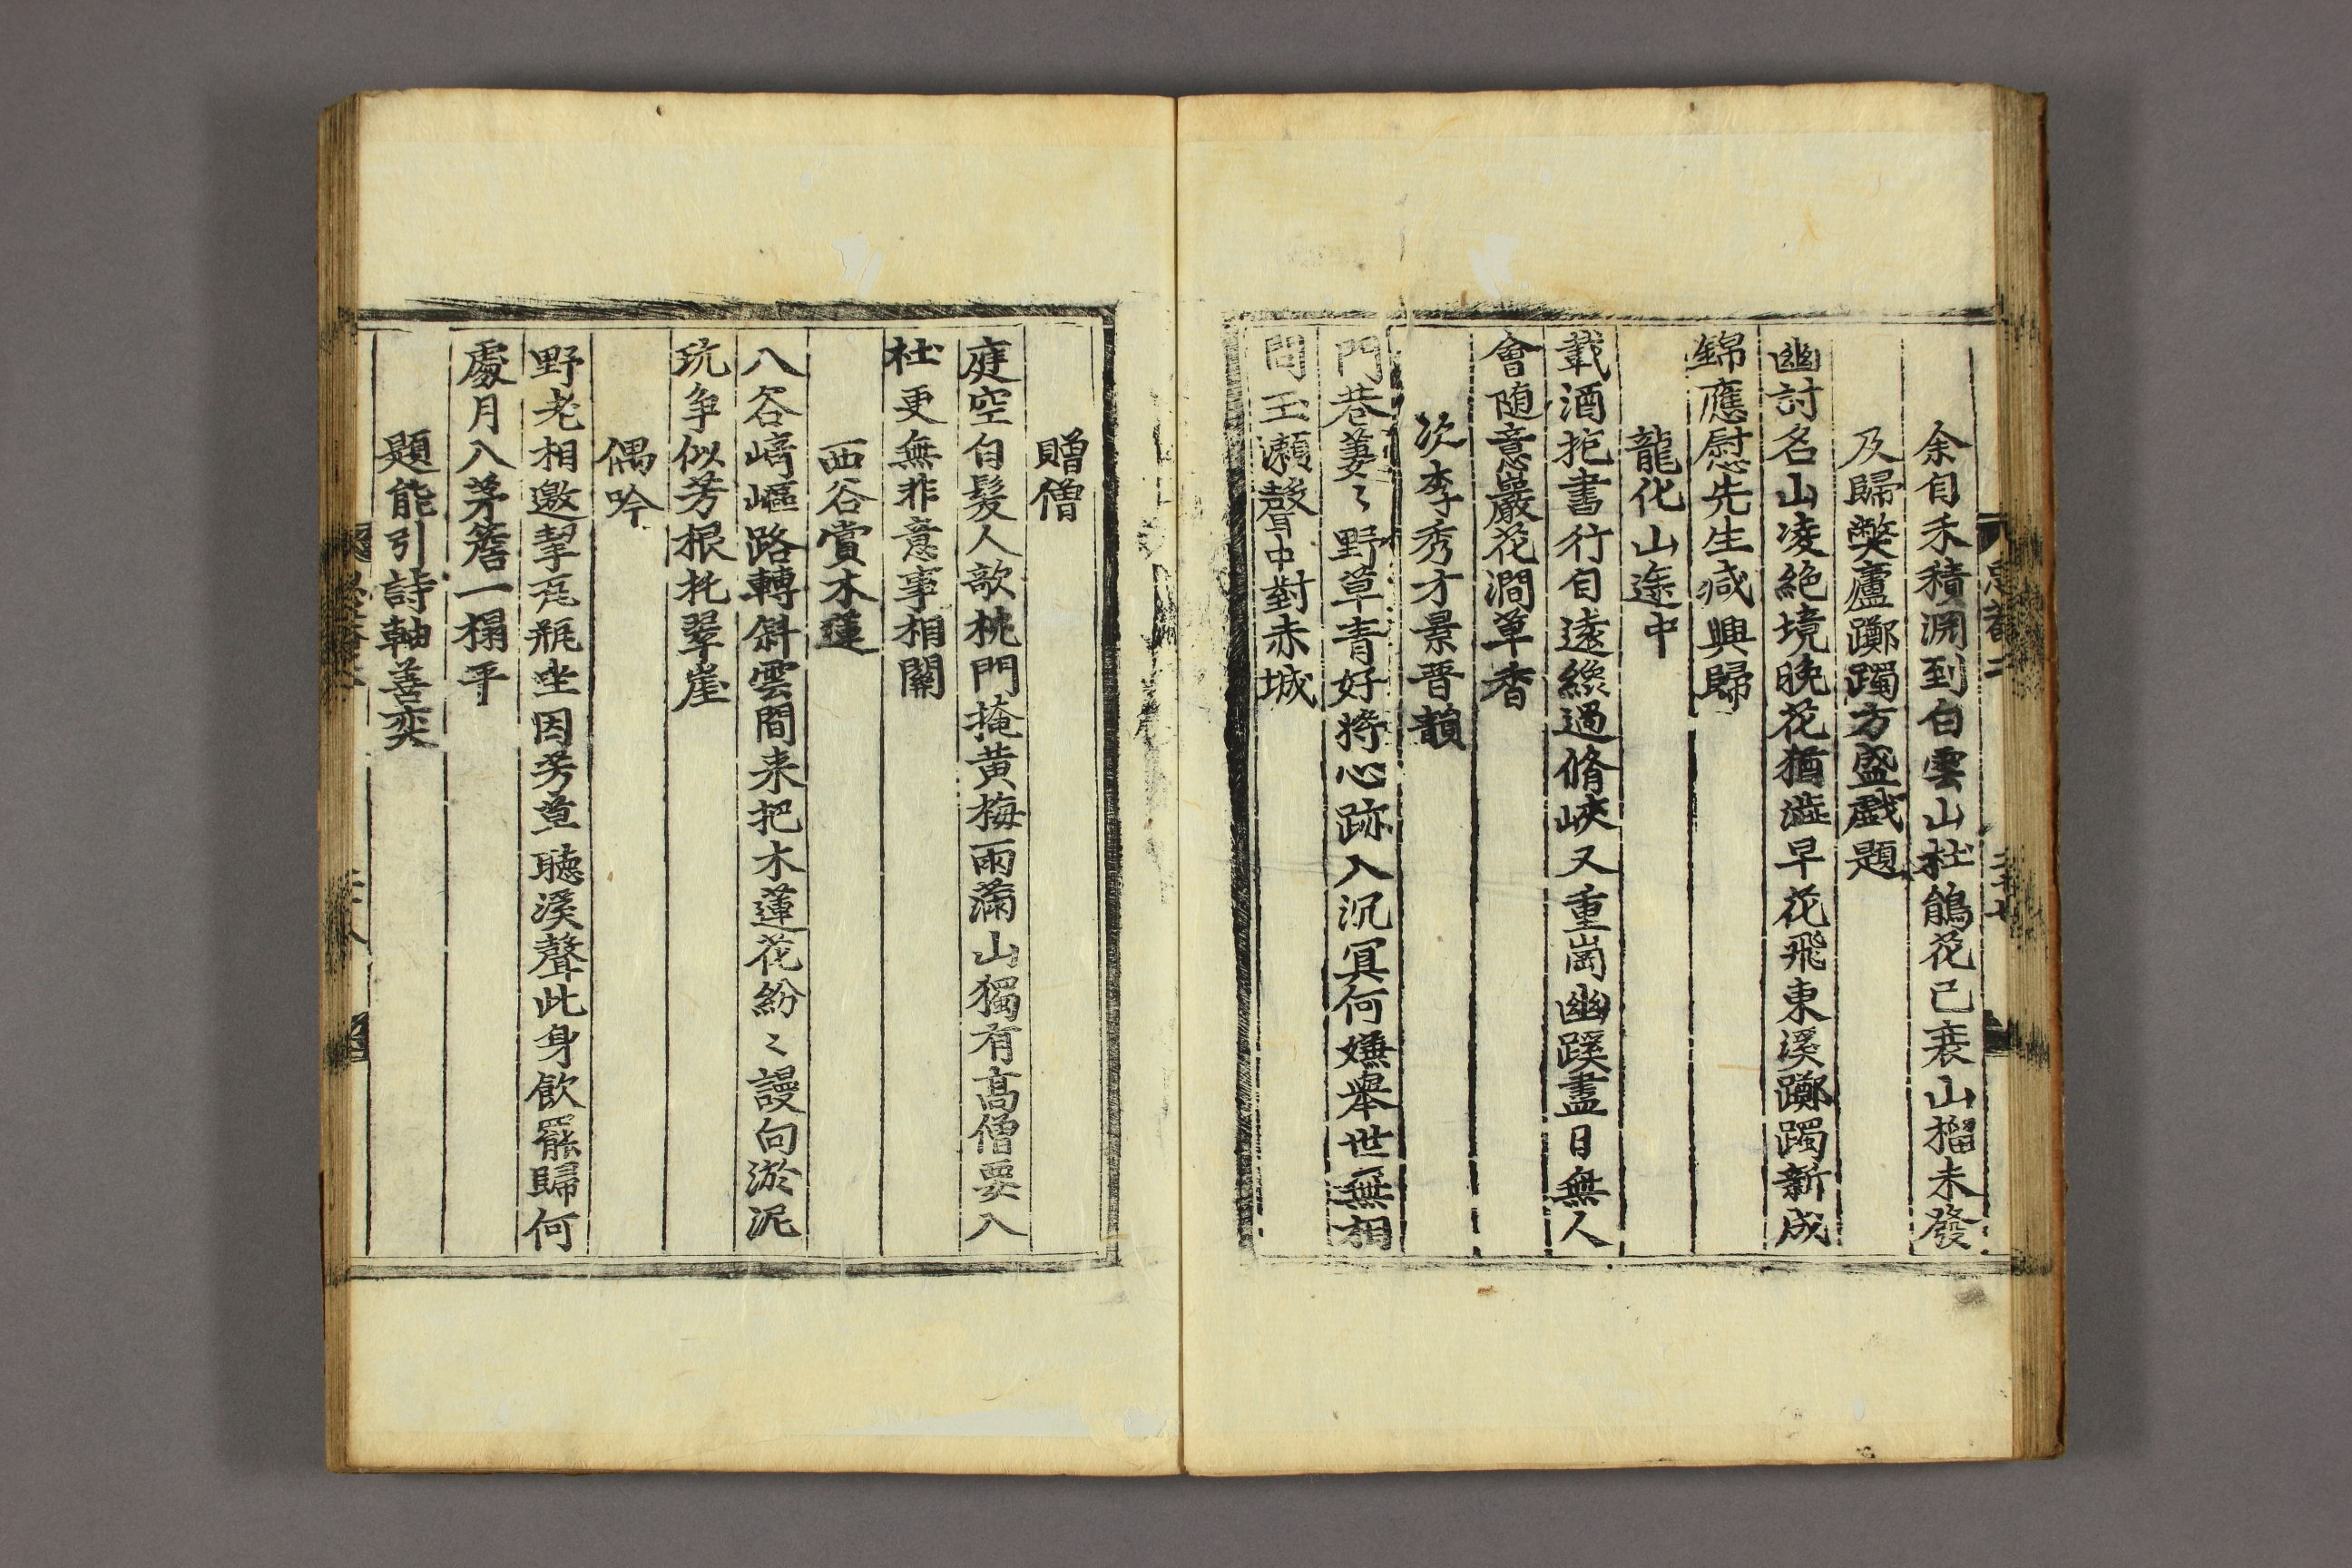 余自禾積淵到白雲山杜鵑花已衰山榴未發
及歸弊廬躑躅方盛戲題
幽討名山凌絶境晚花猶澁早花飛東溪躑躅新成
錦應慰先生减興歸
龍化山途中
載酒拕書行自遠纔過脩峽又重崗幽蹊盡日無人
會随意巖花澗草香
次李秀才景晋韻
門巷萋〻野草青好將心跡入沉冥何嫌舉世無相
問玉瀨聲中對赤城
贈僧
庭空白髮人歌桃門掩黄梅雨滿山獨有高僧要入
社更無非意事相關
西谷賞木蓮
入谷﨑嶇路轉斜雲間来把木蓮花紛〻謾向淤泥
玩争似芳根托翠崖
偶吟
野老相邀挈瓦瓶坐因芳草聽溪聲此身飲罷歸何
處月入茅簷一榻平
題能引詩軸善奕